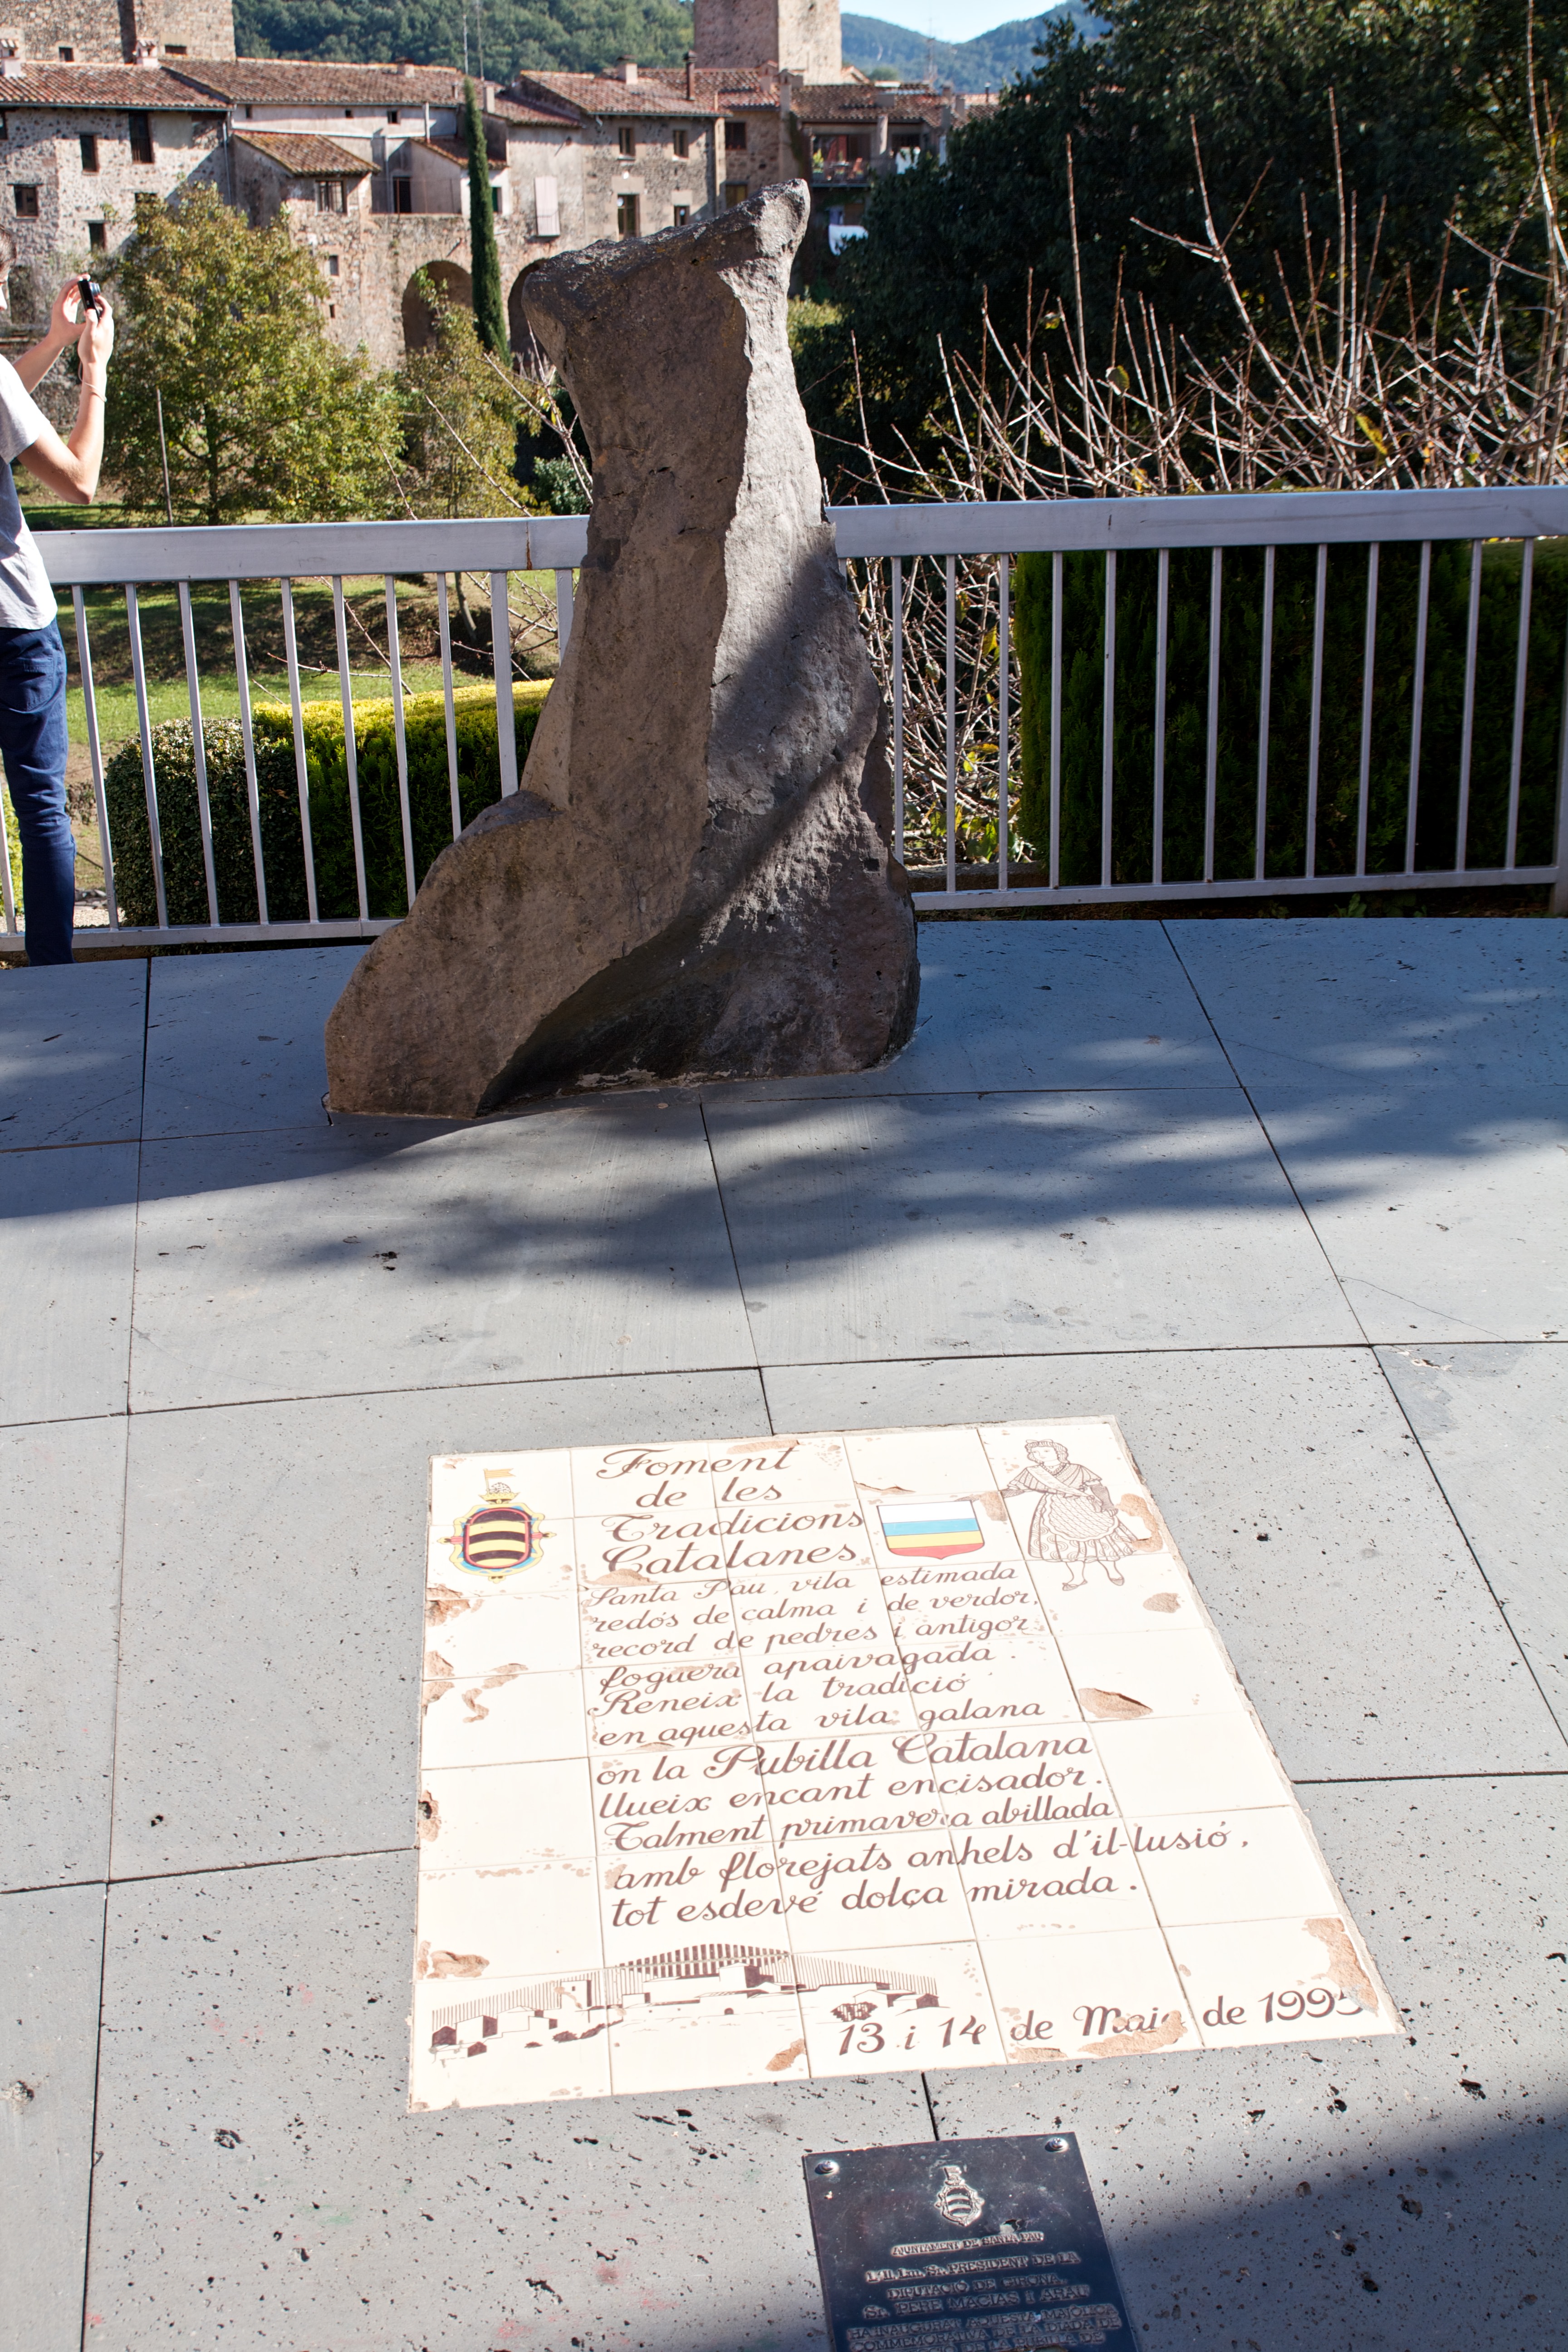 Foment
de les
Tradicions
Catalanes
Santa Pau, vila estimada
redós de calma i de verdor,
record de pedres i antigor
foguera apaivagada.
Reneix la tradició
en aquesta vila galana
on la Pubilla Catalana
llueix encant encisador.
Talment primavera abillada
amb florejats anhels d'il·lusió,
tot esdevé dolça mirada.
13 i 14 de Maig de 1995
AJUNTAMENT DE SANTA PAU
L'IL·LM. SR. PRESIDENT DE LA
DIPUTACIÓ DE GIRONA
SR. PERE MACIAS I ARAU
HA INAUGURAT AQUESTA MAJÒLICA
COMMEMORATIVA DE LA DIADA DE
DE LA PUBILLA DE